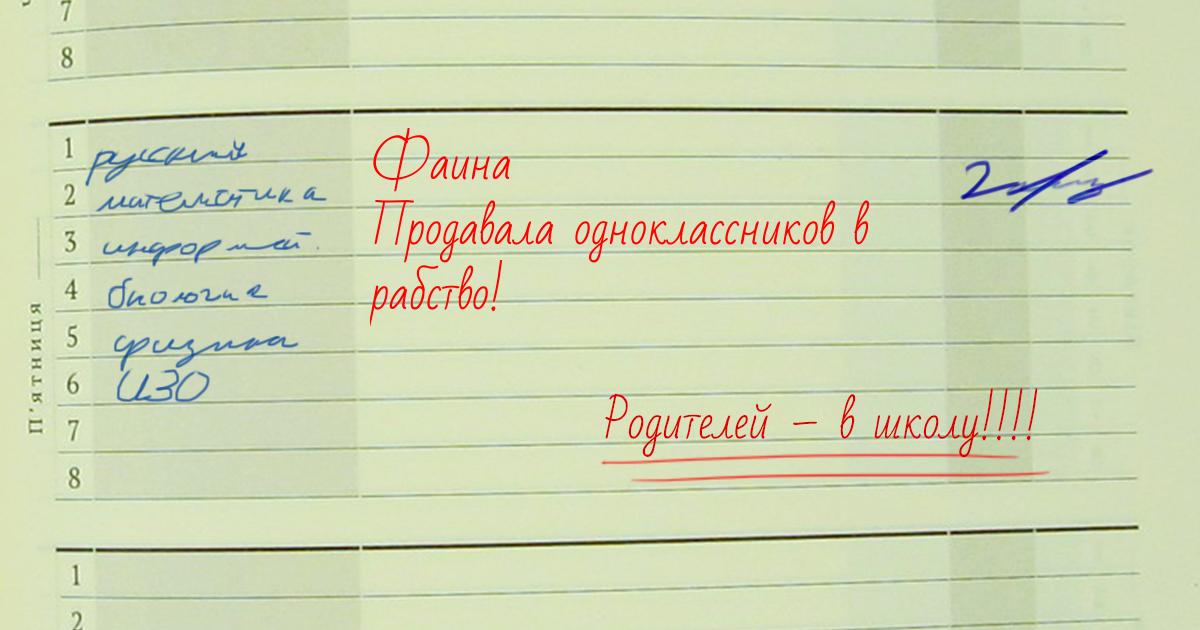 7
8
1 русский
Фаина
2 математика
2
Продавала одноклассников в
3 информат.
4 биология
рабство!
5 физика
6 ИЗО
Родителей – в школу!!!!
7
8
П'ятниця
1
2